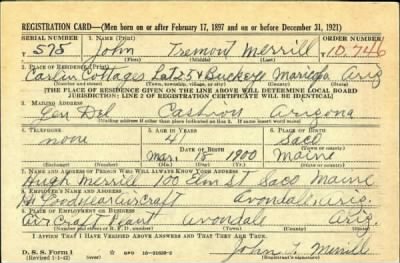 REGISTRATION CARD—(Men born on or after February 17, 1897 and on or before December 31, 1921)
SERIAL NUMBER 1. NAME (Print) ORDER NUMBER
575 John Tremont Merrill 10,746
(First) (Middle) (Last)
2. PLACE OF RESIDENCE (Print)
Carlin Cottages Lat 25 Buckeye Maricopa Ariz
[THE PLACE OF RESIDENCE GIVEN ON THE LINE ABOVE WILL DETERMINE LOCAL BOARD
JURISDICTION; LINE 2 OF REGISTRATION CERTIFICATE WILL BE IDENTICAL]
3. MAILING ADDRESS
Gen Del Cashion Arizona
(Mailing address if other than place indicated on line 2. If same insert word same)
4. TELEPHONE 5. AGE IN YEARS 6. PLACE OF BIRTH
none 41 Saco
DATE OF BIRTH
Mar. 18 1900 Maine
(Exchange) (Number) (Mo.) (Day) (Yr.) (State or country)
7. NAME AND ADDRESS OF PERSON WHO WILL ALWAYS KNOW YOUR ADDRESS
Hugh Merrill 100 Elm St Saco Maine
8. EMPLOYER'S NAME AND ADDRESS
Goodyear Aircraft Avondale, Ariz.
9. PLACE OF EMPLOYMENT OR BUSINESS
Aircraft Plant Avondale Ariz.
(Number and street or R. F. D. number) (Town) (County) (State)
I AFFIRM THAT I HAVE VERIFIED ABOVE ANSWERS AND THAT THEY ARE TRUE.
D. S. S. Form 1
(Revised 1-1-42) (over)
John T. Merrill